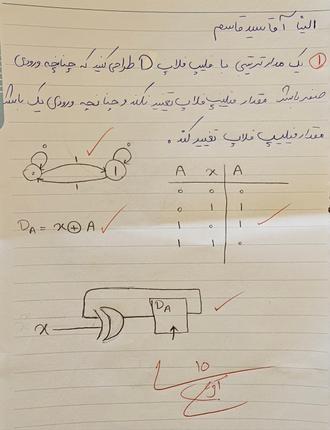 الینا آقاسیدقاسم
① یک مدار ترتیبی با فلیپ فلاپ D طراحی کنید که چنانچه ورودی
صفر باشد مقدار فیلیپ فلاپ تغییر نکند و چنانچه ورودی یک باشد
مقدار فیلیپ فلاپ تغییر کند.
0 1 0
0 1
1
A x A
0 0 0
0 1 1
1 0 1
1 1 0
D_A = x ⊕ A
D_A
x
10